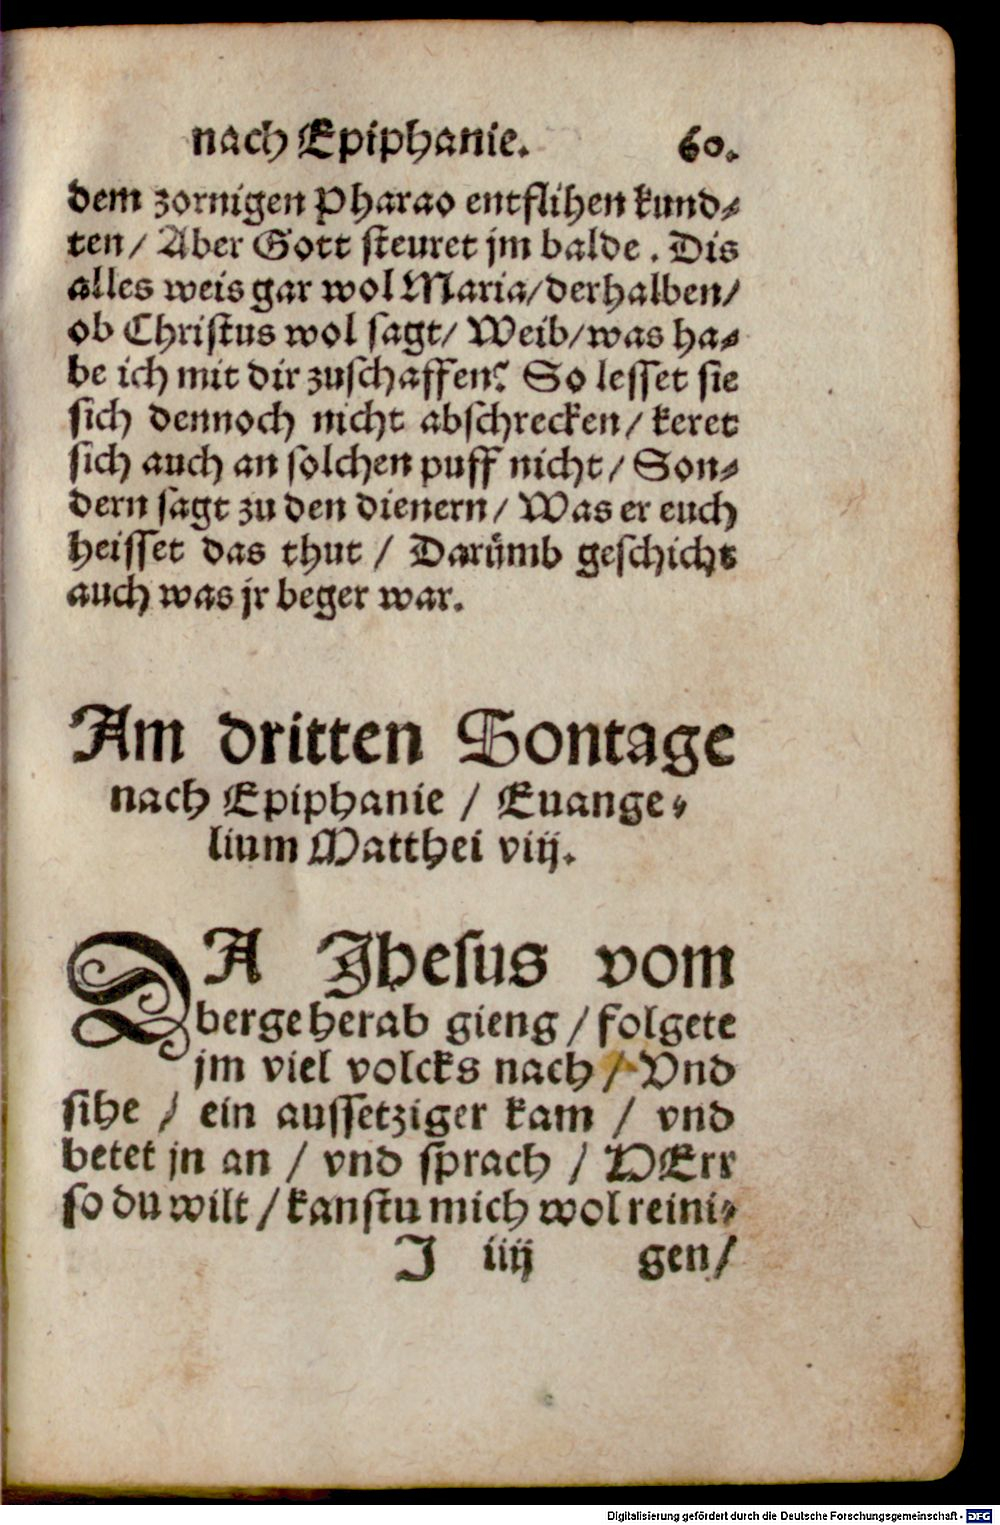 nach Epiphanie. 60.
dem zornigen Pharao entflihen kund⸗
ten/ Aber Gott steuret jm balde. Dis
alles weis gar wol Maria/derhalben/
ob Christus wol sagt/ Weib/was ha⸗
be ich mit dir zuschaffen? So lesset sie
sich dennoch nicht abschrecken/ keret
sich auch an solchen puff nicht/ Son⸗
dern sagt zu den dienern/ Was er euch
heisset das thut / Darümb geschicht
auch was jr beger war.
Am dritten Sontage
nach Epiphanie / Euange⸗
lium Matthei viij.
DA Jhesus vom
berge herab gieng /folgete
jm viel volcks nach/ Vnd
sihe / ein aussetziger kam / vnd
betet jn an / vnd sprach / HErr
so du wilt /kanstu mich wol reini⸗
J iiij gen/
Digitalisierung gefördert durch die Deutsche Forschungsgemeinschaft - DFG